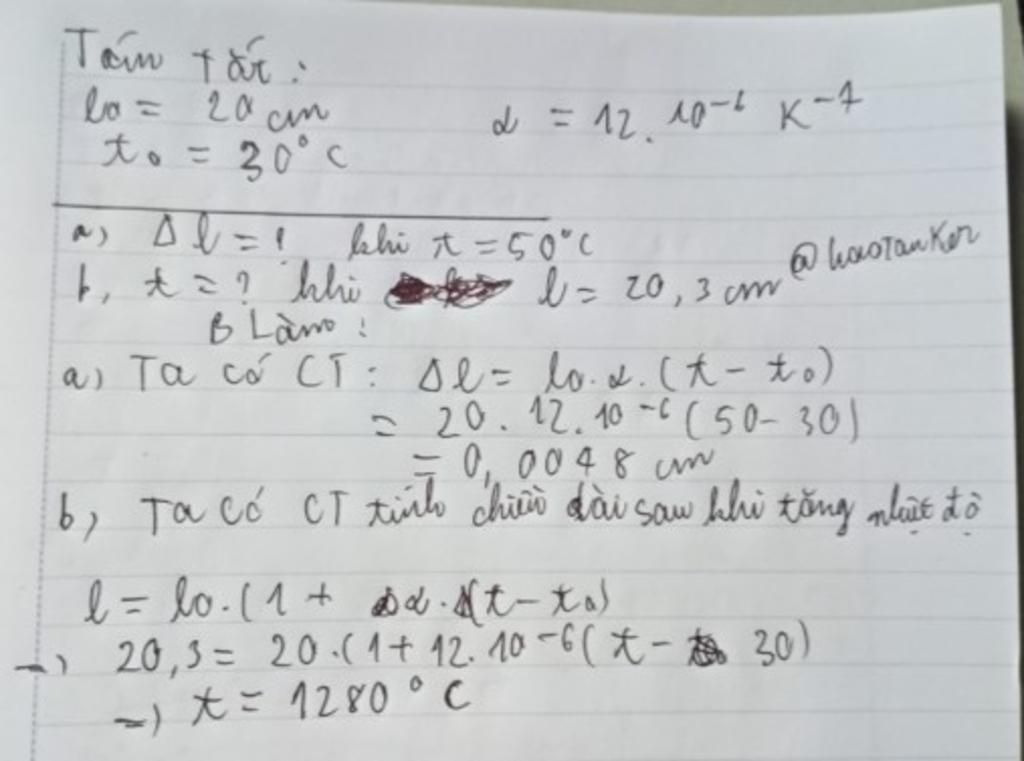 Tóm tắt:
l0 = 20 cm α = 12. 10^-6 K^-1
t0 = 30°C
a) Δl = ? khi t = 50°C
b, t = ? khi l = 20,3 cm @haotanker
B Làm:
a) Ta có CT: Δl = l0.α.(t - t0)
= 20. 12. 10^-6 (50 - 30)
= 0,0048 cm
b) Ta có CT tính chiều dài sau khi tăng nhiệt độ
l = l0.(1 + α.(t - t0)
-) 20,3 = 20.(1 + 12.10^-6 (t - 30)
-) t = 1280°C